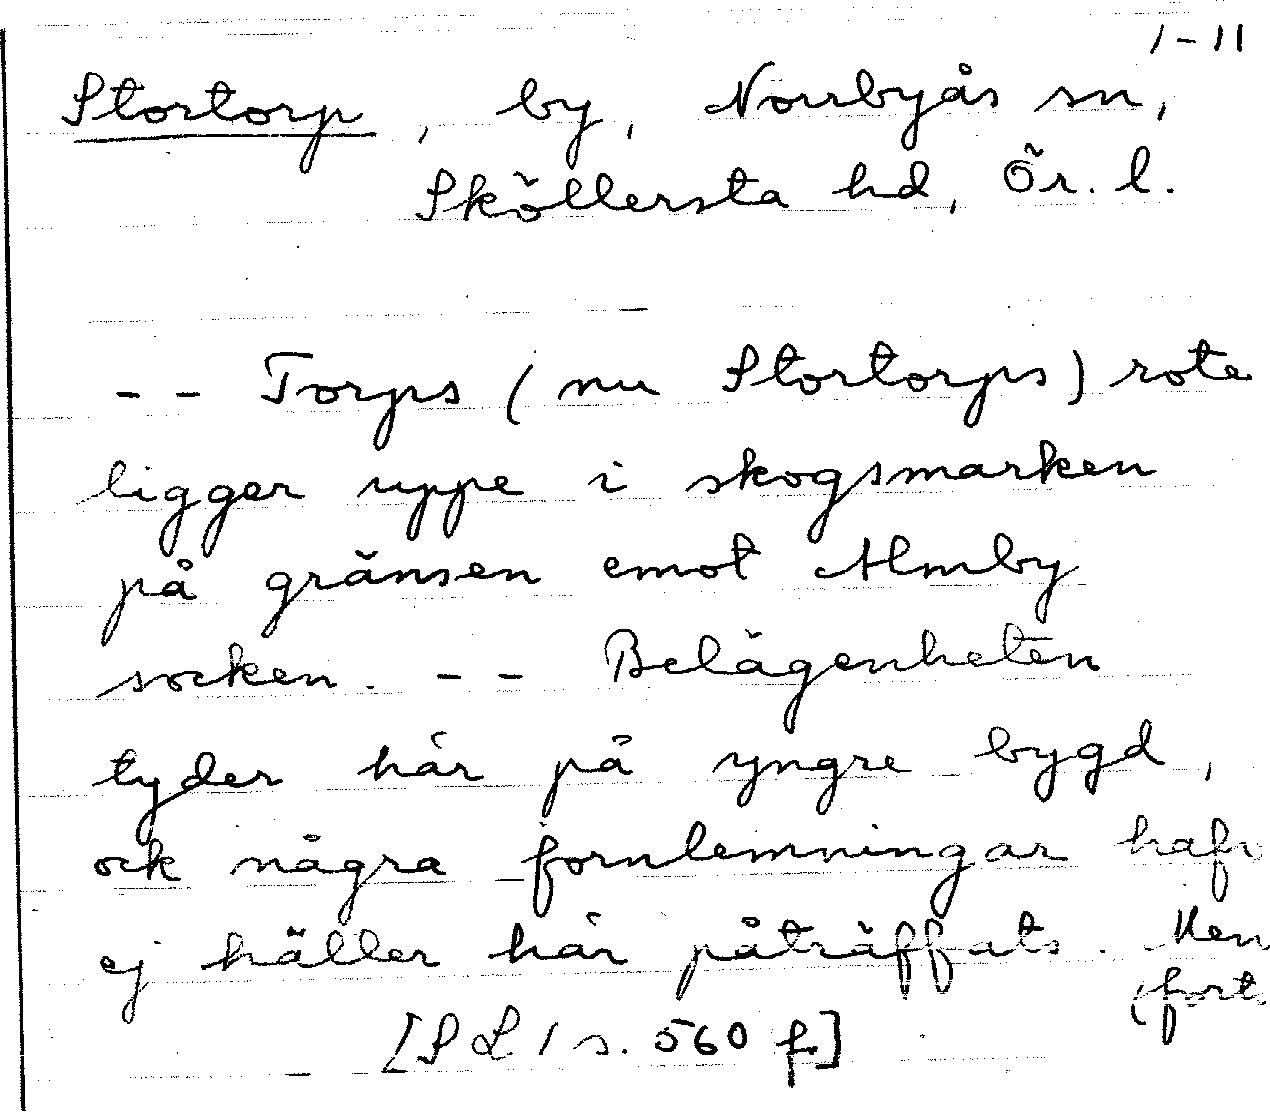 1-11
Stortorp, by, Norrbyås sn,
Sköllersta hd, Ör. l.
-- Torps (nu Stortorps) rote
ligger uppe i skogsmarken
på gränsen emot Almby
socken. -- Belägenheten
tyder här på yngre bygd,
ock några fornlemningar hafv
ej häller här påträffats. Men
(fort.
[SL 1 s. 560 f]